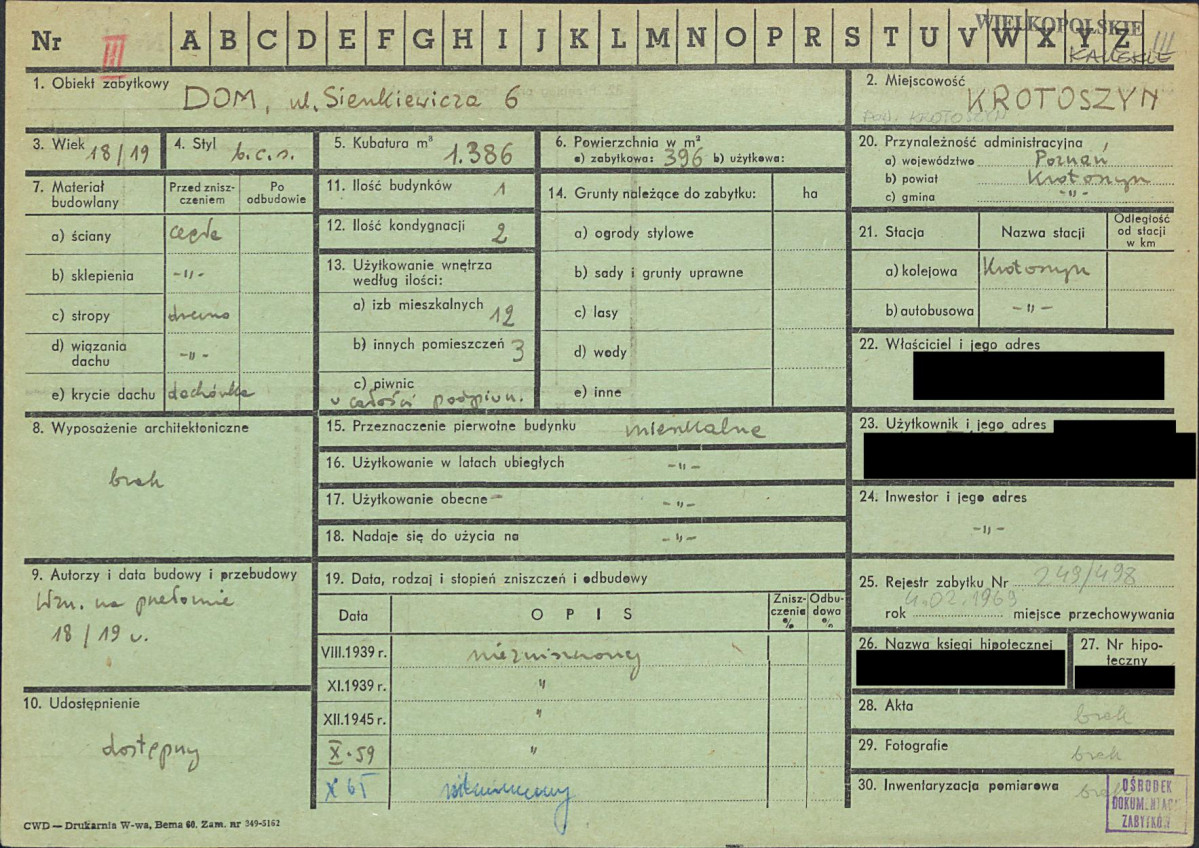 Nr III A B C D E F G H I J K L M N O P R S T U V W X Y Z
WIELKOPOLSKIE
KALISKIE III
1. Obiekt zabytkowy DOM, ul. Sienkiewicza 6
2. Miejscowość KROTOSZYN
POW. KROTOSZYN
3. Wiek 18/19
4. Styl b.c.s.
5. Kubatura m³ 1.386
6. Powierzchnia w m²
a) zabytkowa: 396 b) użytkowa:
7. Materiał budowlany
Przed zniszczeniem
Po odbudowie
a) ściany cegła
b) sklepienia -"-
c) stropy drewno
d) wiązania dachu -"-
e) krycie dachu dachówka
8. Wyposażenie architektoniczne
brak
9. Autorzy i data budowy i przebudowy
Wzn. na przełomie
18/19 w.
10. Udostępnienie
dostępny
11. Ilość budynków 1
12. Ilość kondygnacji 2
13. Użytkowanie wnętrza
według ilości:
a) izb mieszkalnych 12
b) innych pomieszczeń 3
c) piwnic
w całości podpiwn.
14. Grunty należące do zabytku: ha
a) ogrody stylowe
b) sady i grunty uprawne
c) lasy
d) wody
e) inne
15. Przeznaczenie pierwotne budynku mieszkalne
16. Użytkowanie w latach ubiegłych -"-
17. Użytkowanie obecne -"-
18. Nadaje się do użycia na -"-
19. Data, rodzaj i stopień zniszczeń i odbudowy
Data OPIS Zniszczenie % Odbudowa %
VIII.1939 r. niezniszczony
XI.1939 r. "
XII.1945 r. "
X.59 "
X 65
20. Przynależność administracyjna
a) województwo Poznań
b) powiat Krotoszyn
c) gmina -"-
21. Stacja Nazwa stacji Odległość od stacji w km
a) kolejowa Krotoszyn
b) autobusowa -"-
22. Właściciel i jego adres
23. Użytkownik i jego adres
24. Inwestor i jego adres
-"-
25. Rejestr zabytku Nr 249/498
rok 4.02.1969 miejsce przechowywania
26. Nazwa księgi hipotecznej
27. Nr hipoteczny
28. Akta brak
29. Fotografie brak
30. Inwentaryzacja pomiarowa brak
OŚRODEK
DOKUMENTACJI
ZABYTKÓW
CWD — Drukarnia W-wa, Bema 60. Zam. nr 349-5162